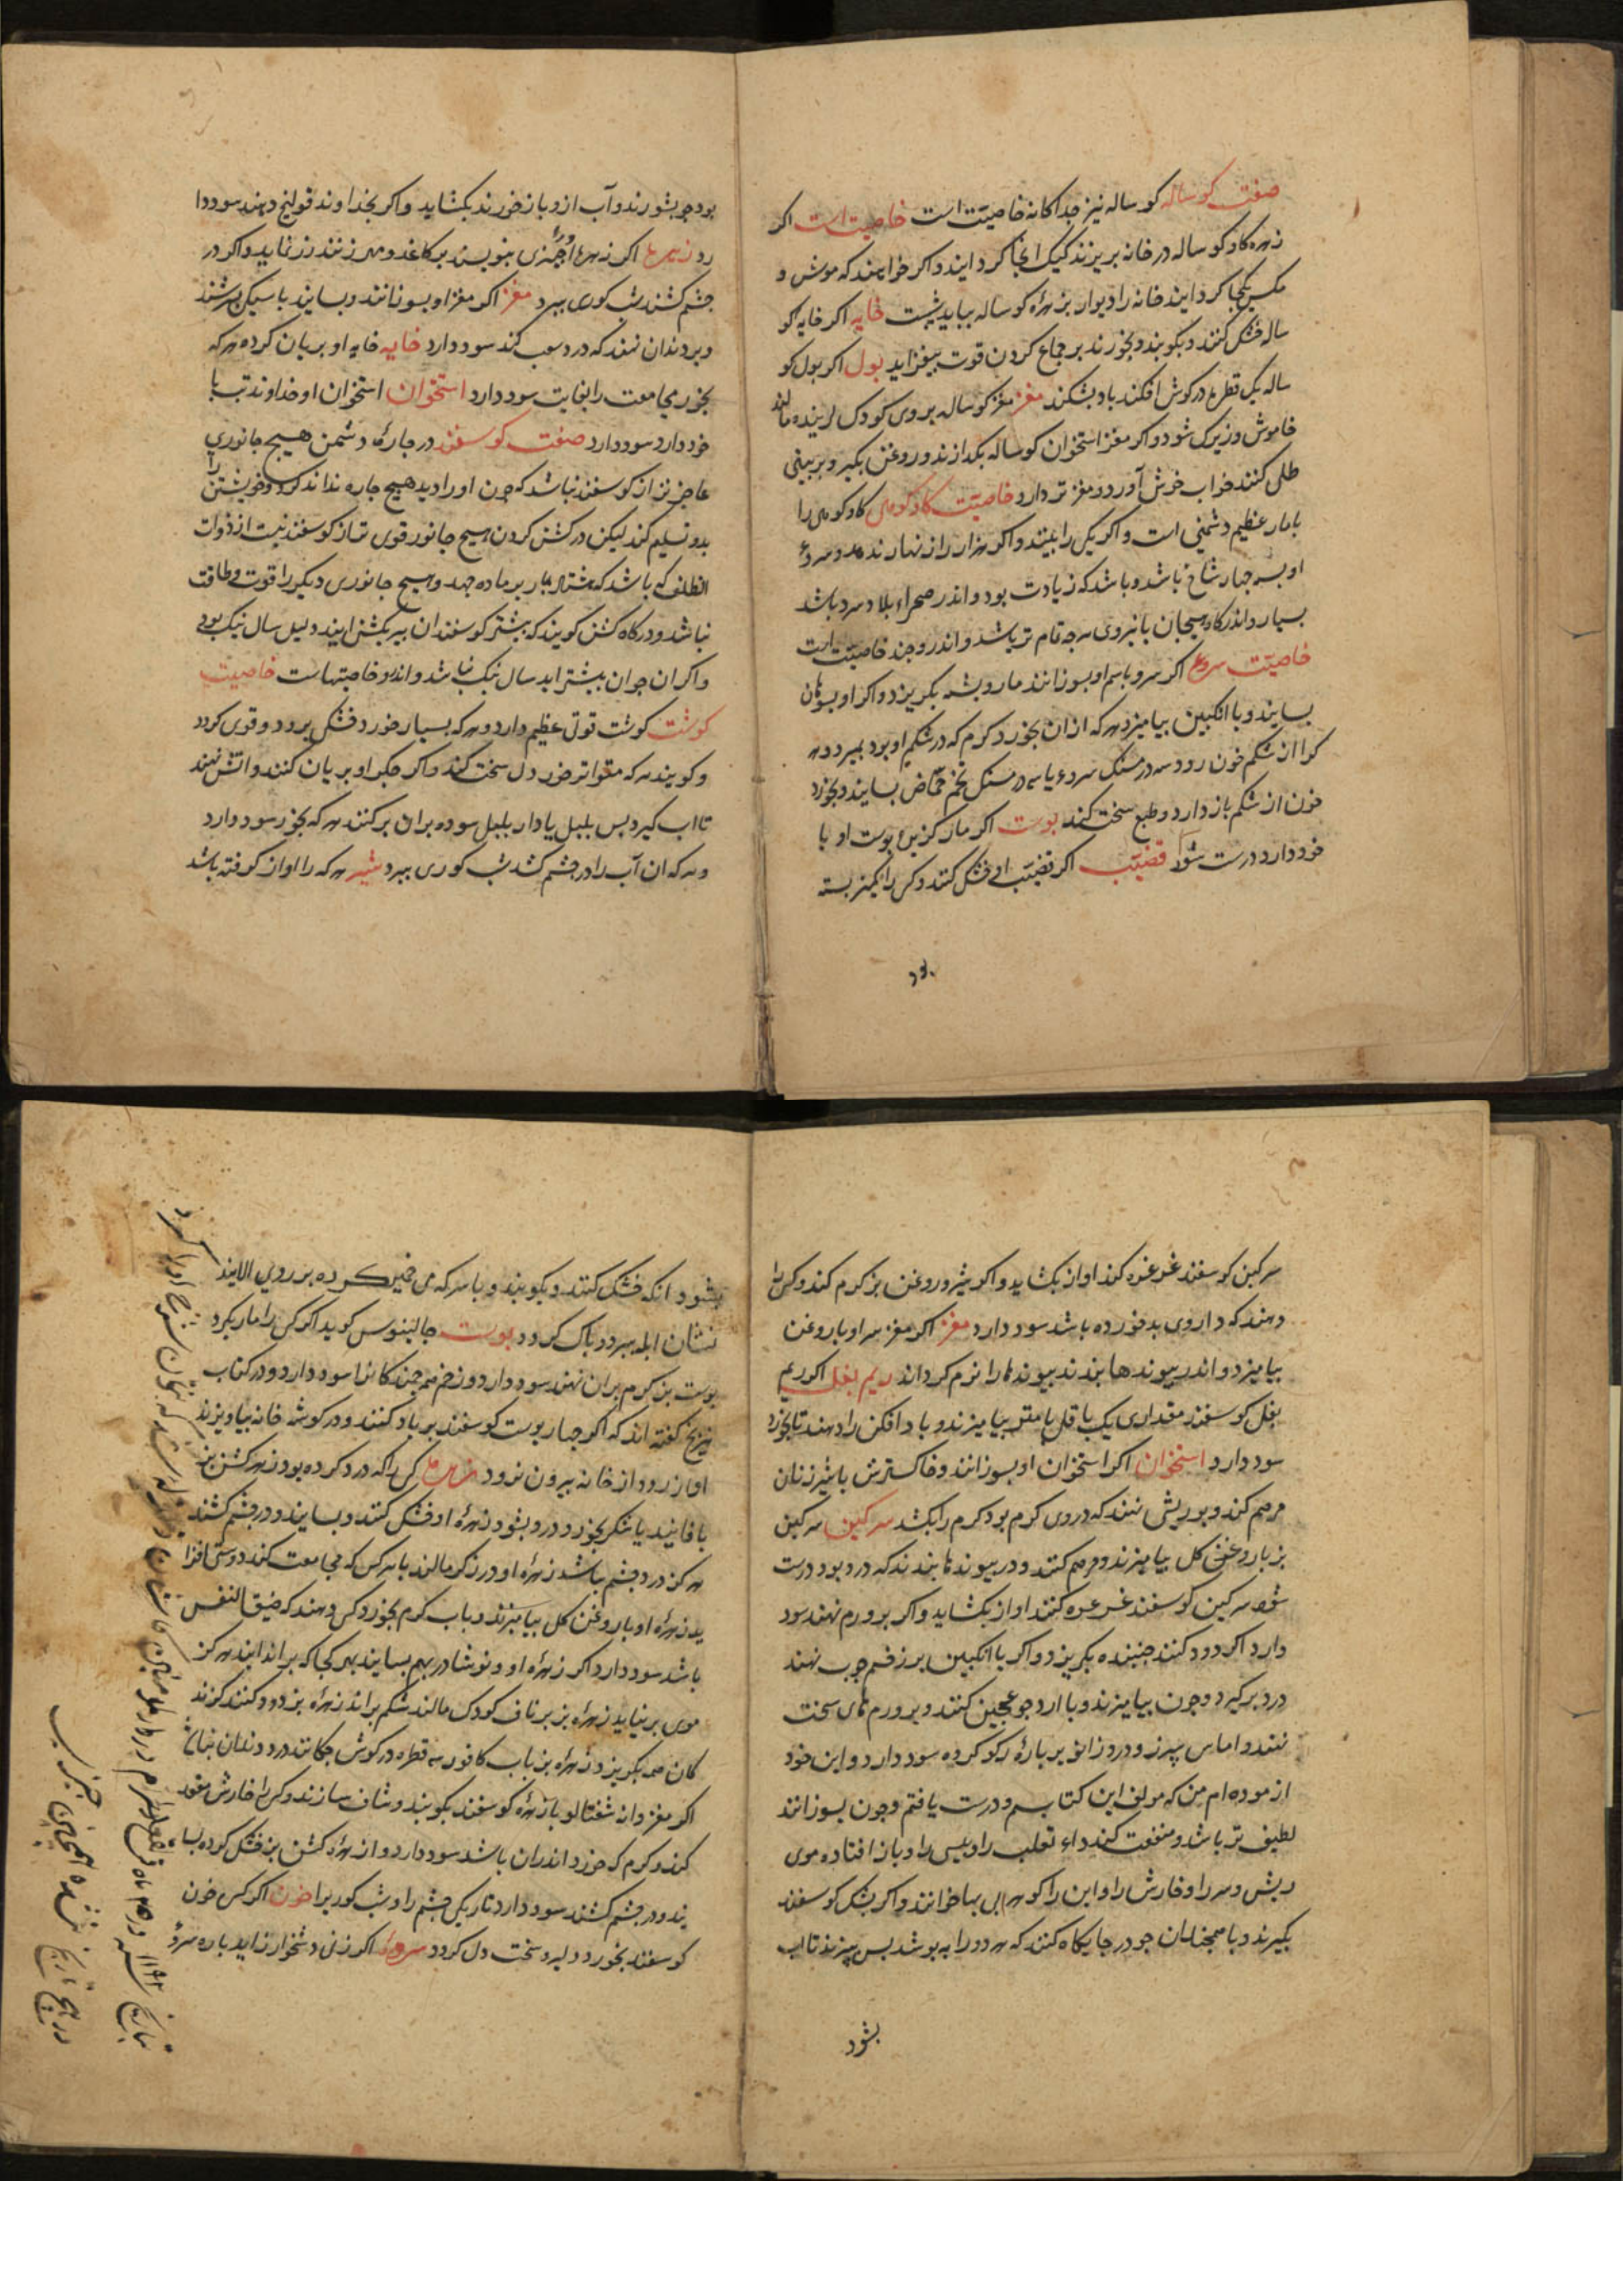 صفت کوساله کوساله نیز جداکانه خاصیت است خاصیت است اکر
زهره کاو کوساله در خانه بریزند کیک انجا کرد ایند واکر خواهند که موش و
مکس یکجا کرد ایند خانه را دیوار بزهرهٔ کوساله بباید خایه اکر خایه کو
ساله خشک کنند و بکوبند و بخورند بر جماع کردن قوت بیفزاید بول اکر بول کو
ساله یک قطره در کوش افکند باد بشکند مغز مغز کوساله بر وی کودک مالند
خاموش وزیرک شود و اکر مغز استخوان کوساله بکدازند و روغن بکیر و بر بینی
طلی کنند خواب خوش آورد و مغز تر دارد خاصیت کاو کوهی کاو کوهی را
با مار عظیم دشمنی است و اکر یکی را بیند و اکر هزار را زنهار ندهد و سروء
او بسه چهار شاخ باشد و باشد که زیادت بود و اندر صحراء بلاد سرد باشد
بسیار و اندر کاه هیجان با نیروی هر چه تمام تر باشد و اندرو چند خاصیت است
خاصیت سروء اکر سرو با سم او بسوزانند مار و پشه بکریزد و اکر او بسوهان
بسایند و با انکبین بیامیزد هر که ازان بخورد کرم که در شکم او بود بمیرد و هر
کرا از شکم خون رود سه درمسنک سروء یا سه درمسنک تخم حماض بسایند و بخورد
خون از شکم باز دارد و طبع سخت کند پوست اکر مار کزیرا پوست او با
خود دارد درست شود قضیب اکر قضیب او خشک کنند و کس را کمیز بسته
بود
بود چو بشورند و آب ازو باز خورند بکشاید و اکر بخداوند قولنج دهند سود دا
رد زهره اکر زهرهٔ او چیزی بنویسند بر کاغد و مهر زنند زر نماید و اکر در
چشم کشند شب کوری ببرد مغز اکر مغز او بسوزانند و بسایند با سیکی بسرشند
و بر دندان نهند که درد صعب کند سود دارد خایه خایه او بریان کرده هر که
بخورد مجامعت را بغایت سود دارد استخوان استخوان او خداوند تب با
خود دارد سود دارد صفت کوسفند در چارهٔ دشمن هیچ جانوری
عاجزتر از کوسفند نباشد که چون او را دید هیچ چاره نداند کرد و خویشتن را
بدو تسلیم کند لیکن در کشن کردن هیچ جانور قوی تر از کوسفند نیست از ذوات
الظلف که باشد که هشتاد بار بر ماده جهد و هیچ جانوری دیکر را قوت و طاقت
نباشد و در کاه کشن کویند که بیشتر کوسفندان پیر بکشن ایند دلیل سال نیک بود
و اکر ان جوان بیشتر اید سال نیک نباشد و اندرو خاصیتهاست خاصیت
کوشت کوشت قوتی عظیم دارد و هر که بسیار خورد خشکی برود و قوی کردد
و کویند هر که متواتر خورد دل سخت کند و اکر جکر او بریان کنند و اتش نهند
تا اب کیرد پس بلبل یا دار بلبل سوده بران برکنند هر که بخورد سود دارد
و هر که ان آب را در چشم کشد شب کوری ببرد شیر هر که را اواز کرفته باشد
سرکین کوسفند غرغره کند اواز بکشاید و اکر شیر و روغن بز کرم کند و کس را
دهند که داروی بد خورده باشد سود دارد مغز اکر مغز سر او با روغن
بیامیزد و اندر پیوندها بندند پیوندها را نرم کرداند ریم بغل اکر ریم
بغل کوسفند مقداری یک باقلی با بیامیزند و باد افکن را دهند تا بخورد
سود دارد استخوان اکر استخوان او بسوزانند و خاکسترش با شیر زنان
مرهم کند و بر ریش نهند که در وی کرم بود کرم را بکشد سرکین سرکین
بز با روغن کل بیامیزند و مرهم کنند و در پیوندها بندند که درد بود درست
شود سرکین کوسفند غرغره کنند اواز بکشاید و اکر بر ورم نهند سود
دارد اکر دود کنند جنبنده بکریزد و اکر با انکبین بر زخم چوب نهند
درد برکیرد و چون بیامیزند و با ارد جو عجین کنند و بر ورم های سخت
نهند و اماس سپرز و درد زانو بر پارهٔ رکو کرده سود دارد و این خود
ازموده ام من که مولف این کتابم و درست یافتم و چون بسوزانند
لطیف تر باشد و منفعت کند داء ثعلب را و پیس را و باز افتاده موی
ریش و سر را و خارش را و این را کوهر ابی بها خوانند و اکر پشک کوسفند
بکیرند و با همچندان جو در جایکاه کنند که هر دو را بپوشد پس بپزند تا اب
بشود
بشود انکه خشک کنند و بکوبند و با سرکه می خمیر کرده بر روی الایند
نشان ابله ببرد و پاک کردد پوست جالینوس کوید اکر کس را مار بکزد
پوست بز کرم بران نهند سود دارد و زخم چند کانرا سود دارد و در کتاب
تیریخ کفته اند که اکر چهار پوست کوسفند پر باد کنند و در کوشه خانه بیاویزند
اواز رود از خانه بیرون نرود زهره کس را که درد کرده بود زهر کشن بز
با فانید یا شکر بخورد درد بشود زهرهٔ او خشک کنند و بسایند و در چشم کشند
هر کز درد چشم نباشد زهرهٔ او در ذکر مالند با هر کس که مجامعت کند دوستی افزا
ید زهرهٔ او با روغن کل بیامیزند و باب کرم بخورد کس دهند که ضیق النفس
باشد سود دارد اکر زهرهٔ او و نوشادر بهم بسایند بهر کجا که براندایند هر کز
موی بر نیاید زهرهٔ بز بر ناف کودک مالند شکم براند زهرهٔ بز دود کنند کزند
کان همه بکریزد زهرهٔ بز باب کافور سه قطره در کوش چکانند درد دندان بنشاند
اکر مغز دانه شفتالو با زهرهٔ کوسفند بکوبند و شاف سازند و کس را خارش مقعد
کند و کرم که خورد اندران باشد سود دارد و از زهرهٔ کشن بز خشک کرده بسا
یند و در چشم کشند سود دارد تاریکی چشم را و شب کوریرا خون اکر کس خون
کوسفند بخورد دلیر و سخت دل کردد سروء اکر زنی دشخوار زاید پاره سرؤ